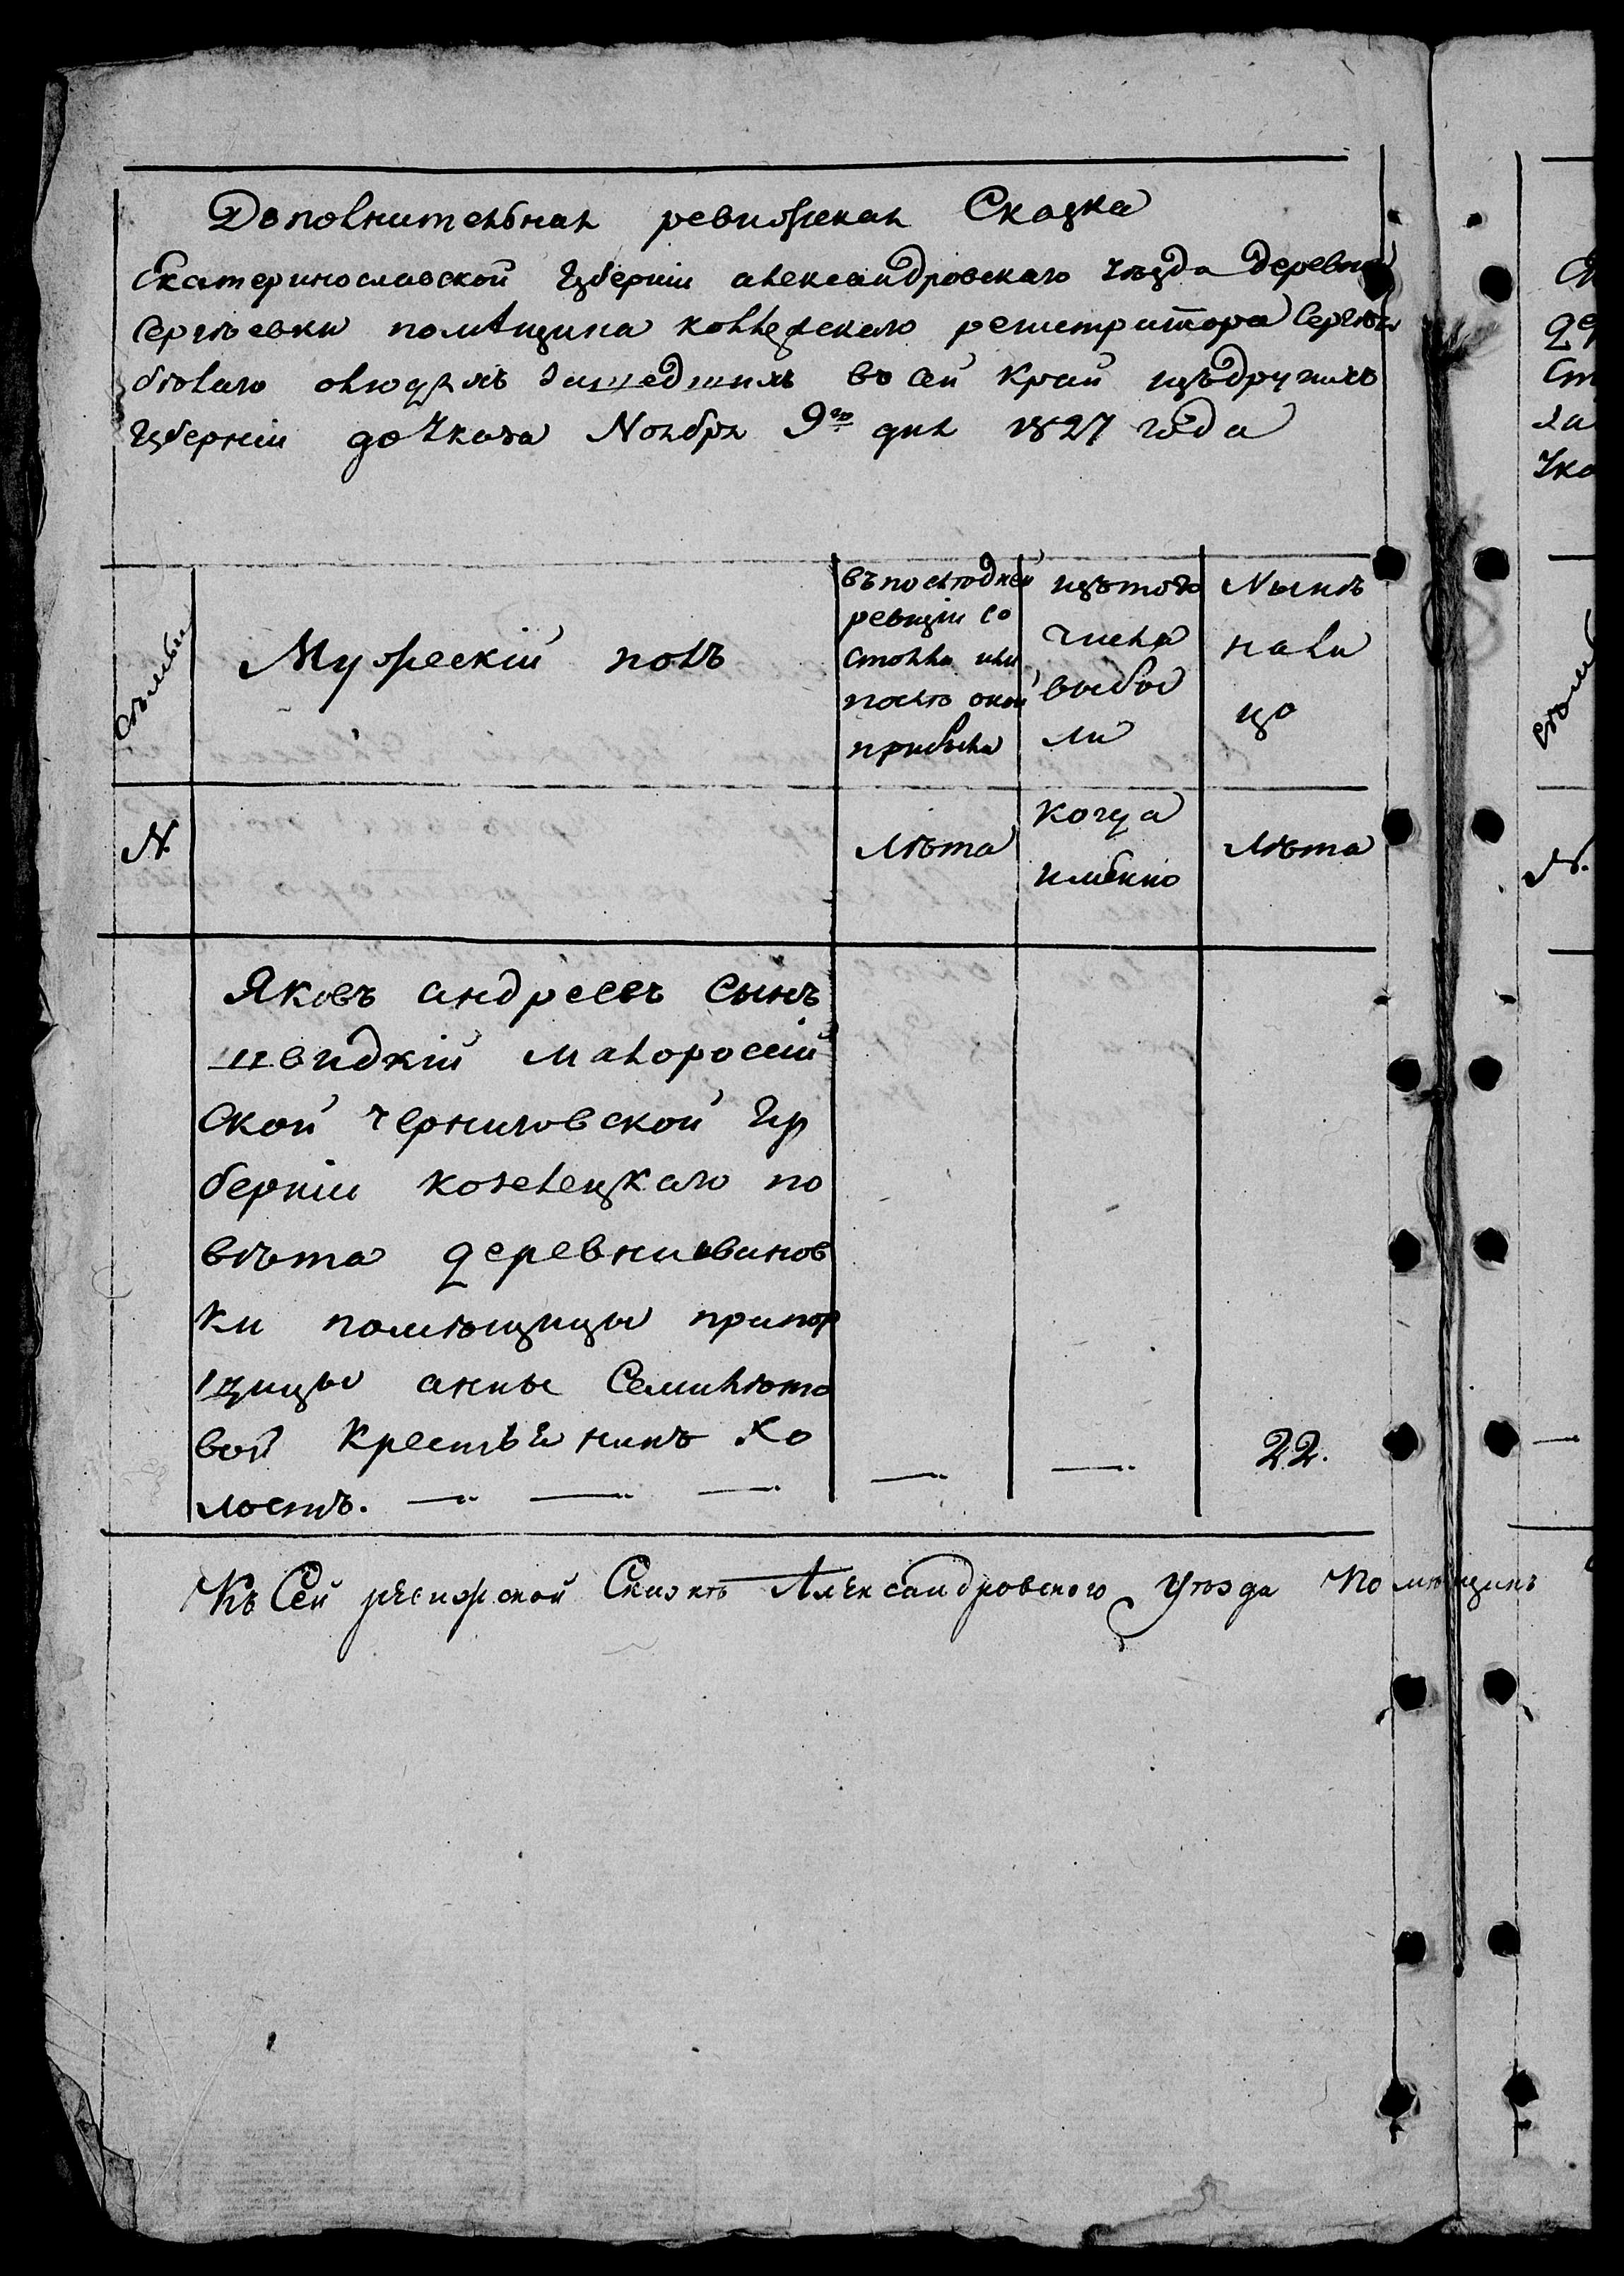 Дополнительная ревижская Сказка
Екатеринославской губернии александровскаго уезда деревни
Сергѣевки помѣщика коллежскаго регистратора Сергѣя
бѣлаго олюдяхъ зашедшихъ въ сей край изъдругихъ
губерніи до Указа Ноября 9го дня 1827 года
Семьи
Мужескій полъ
въпослѣдней
ревизіи со
стояло или
послѣ оной
прибыло
изътого
числа
выбы
ли
Нынѣ
нали
цо
№
Лѣта
когда
имѣнно
Лѣта
Яковъ андреевъ сынъ
швидкій малоросій
ской черниговской гу
берніи козелецкаго по
вѣта деревни ивановки
ки помѣщицы прапор
щицы анны Семилѣто
вой крестьянинъ хо
лостъ. — — — — — 22.
Къ Сей ревижской Сказкѣ Александровского уѣзда Помѣщикъ